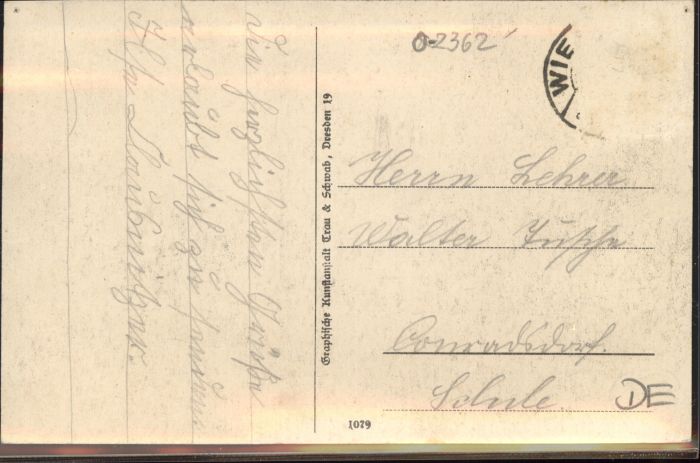 Die herzlichsten Grüße
erlaubt sich zu senden
Ilse
0-2362
WIE
Graphische Kunstanstalt Trau & Schwab, Dresden 19
Herrn Lehrer
Walter
Conradsdorf.
Schule
DE
1079